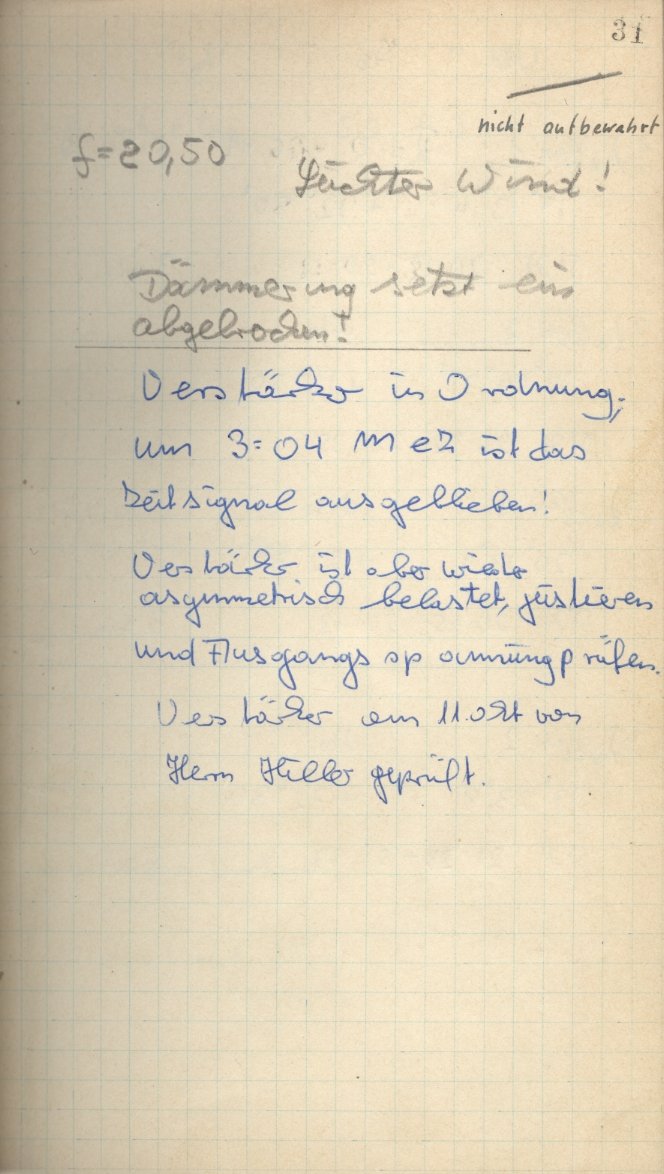 31
nicht aufbewahrt
f=20,50
Leichter Wind!
Dämmerung setzt ein
abgebrochen!
Verstärker in Ordnung;
um 3:04 MEZ ist das
Zeitsignal ausgeblieben!
Verstärker ist aber wieder
asymmetrisch belastet, justieren
und Ausgangsspannung prüfen.
Verstärker am 11.Okt von
Herrn Hiller geprüft.